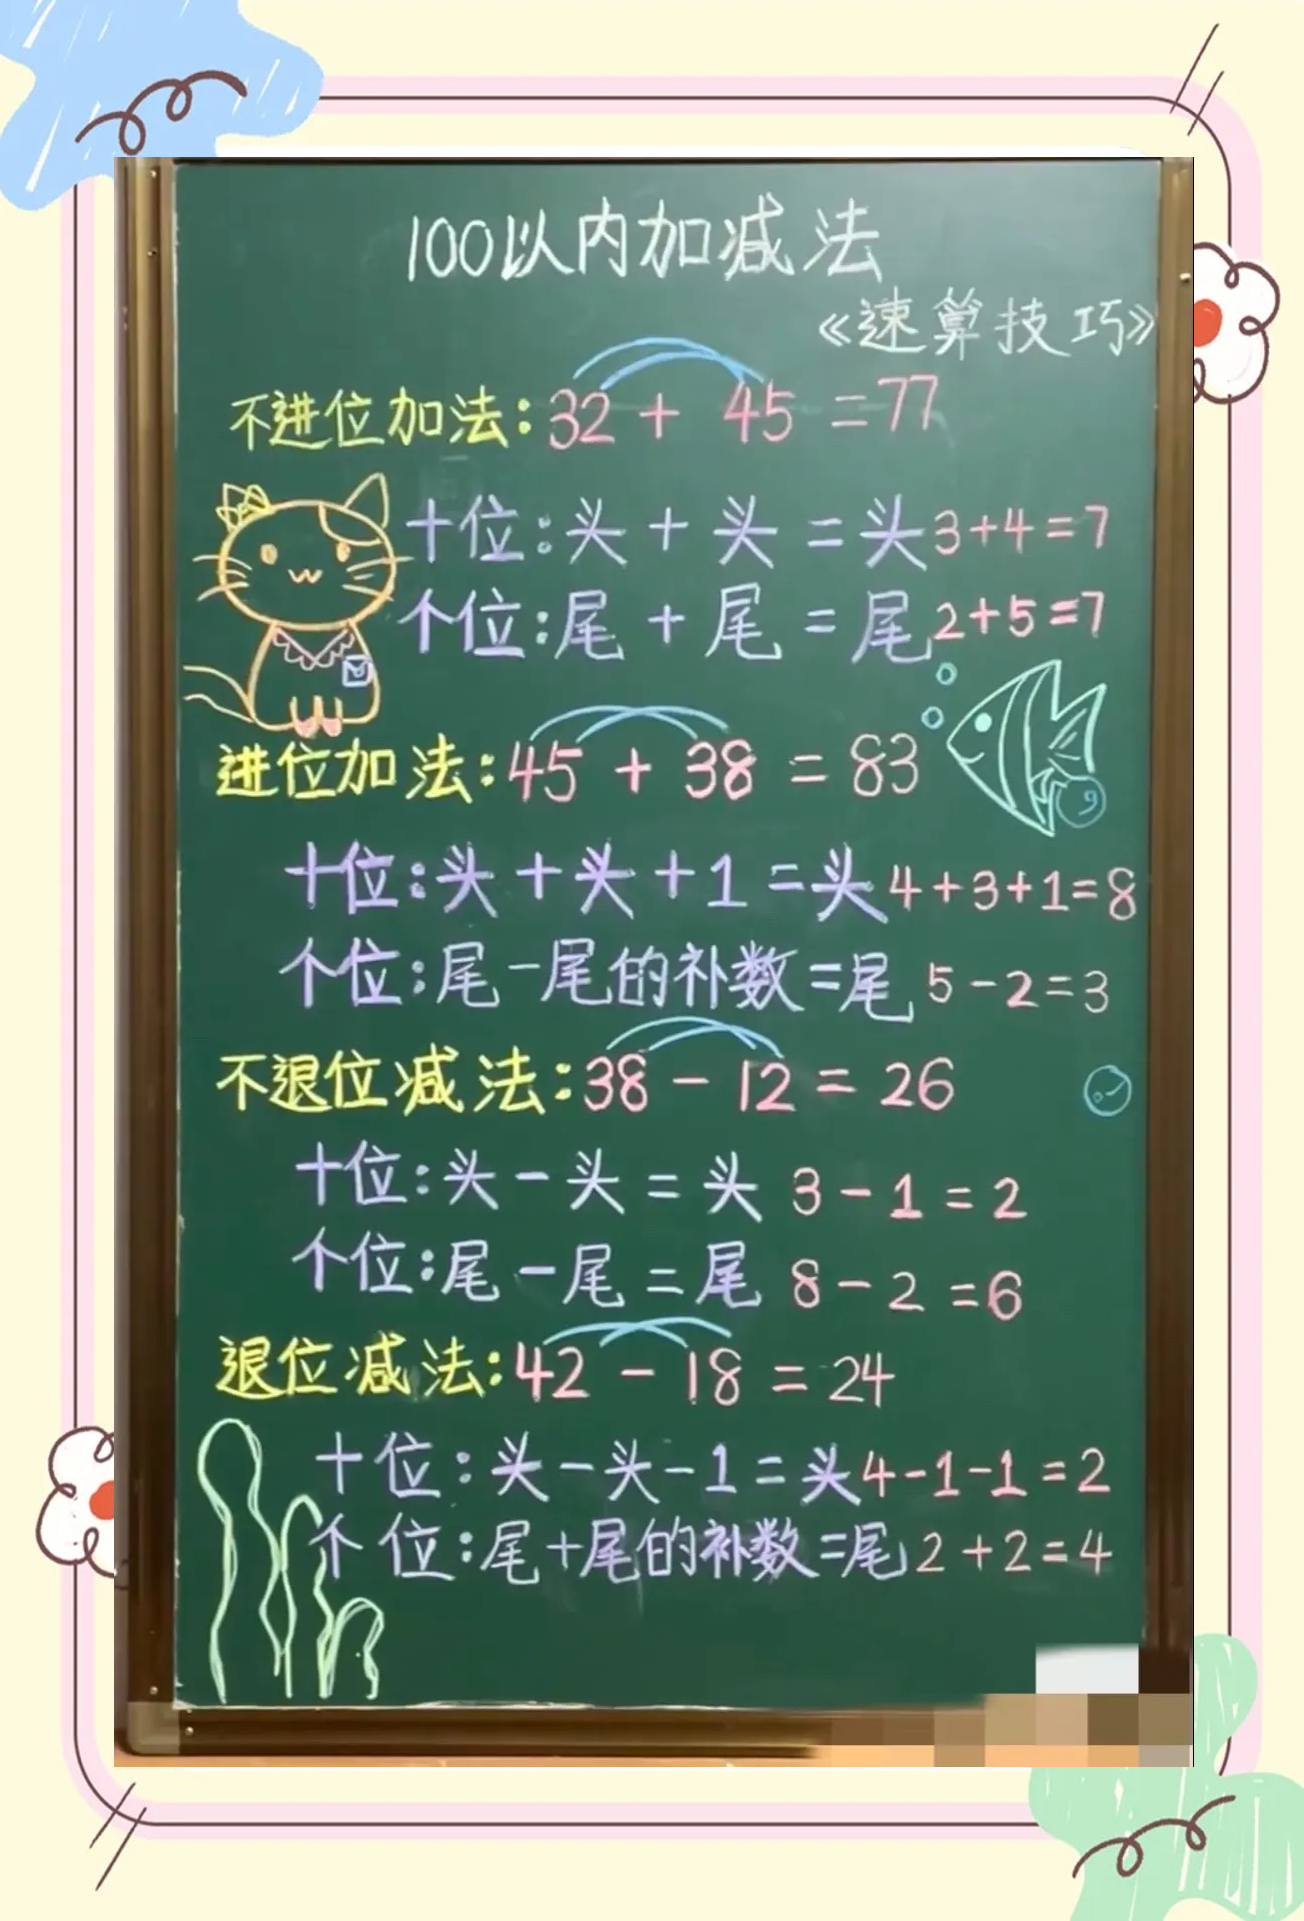 100以内加减法
《速算技巧》
不进位加法:32 + 45 =77
十位:头 + 头 = 头 3+4=7
个位:尾 + 尾 = 尾 2+5=7
进位加法:45 + 38 = 83
十位:头+头+1=头 4+3+1=8
个位:尾-尾的补数=尾 5-2=3
不退位减法:38 - 12 = 26
十位:头-头 = 头 3-1=2
个位:尾-尾 = 尾 8-2=6
退位减法:42 - 18 = 24
十位:头-头-1=头 4-1-1=2
个位:尾+尾的补数=尾 2+2=4